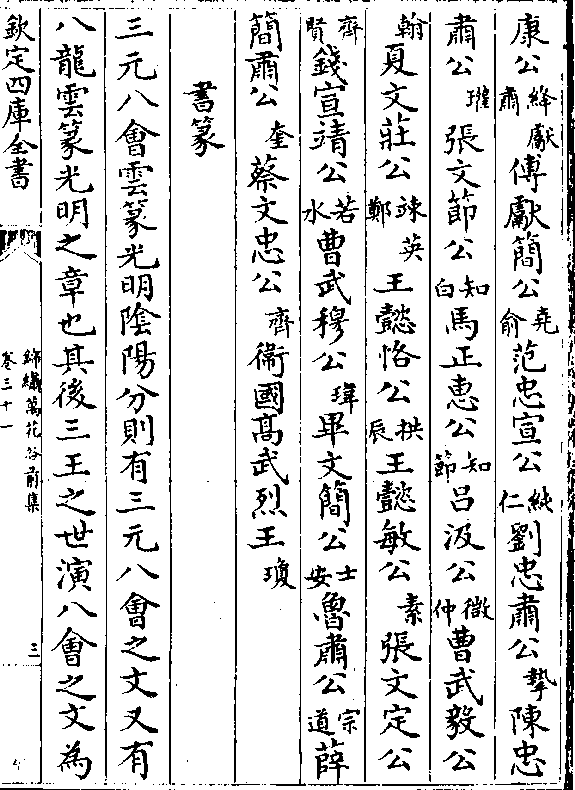 康公絳獻肅傅獻簡公堯俞范忠宣公純仁劉忠肅公摯陳忠
肅公瓘張文節公知白馬正惠公知節呂汲公微仲曹武毅公
翰夏文莊公竦英鄭王懿恪公拱辰王懿敏公素張文定公
齊賢錢宣靖公若水曹武穆公瑋畢文簡公士安魯肅公宗道薛
簡肅公奎蔡文忠公齊衛國高武烈王瓊
書篆
三元八會雲篆光明陰陽分則有三元八會之文又有
八龍雲篆光明之章也其後三王之世演八會之文為
欽定四庫全書
錦繡萬花谷前集
卷三十一
三